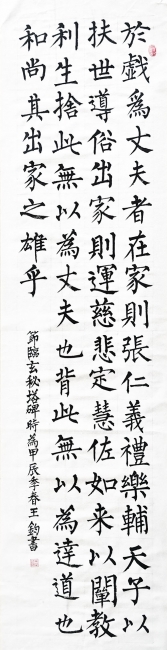 於戲為丈夫者在家則張仁義禮樂輔天子以
扶世導俗出家則運慈悲定慧佐如来以闡教
利生捨此無以為丈夫也背此無以為達道也
和尚其出家之雄乎
節臨玄秘塔碑時為甲辰季春王鈞書